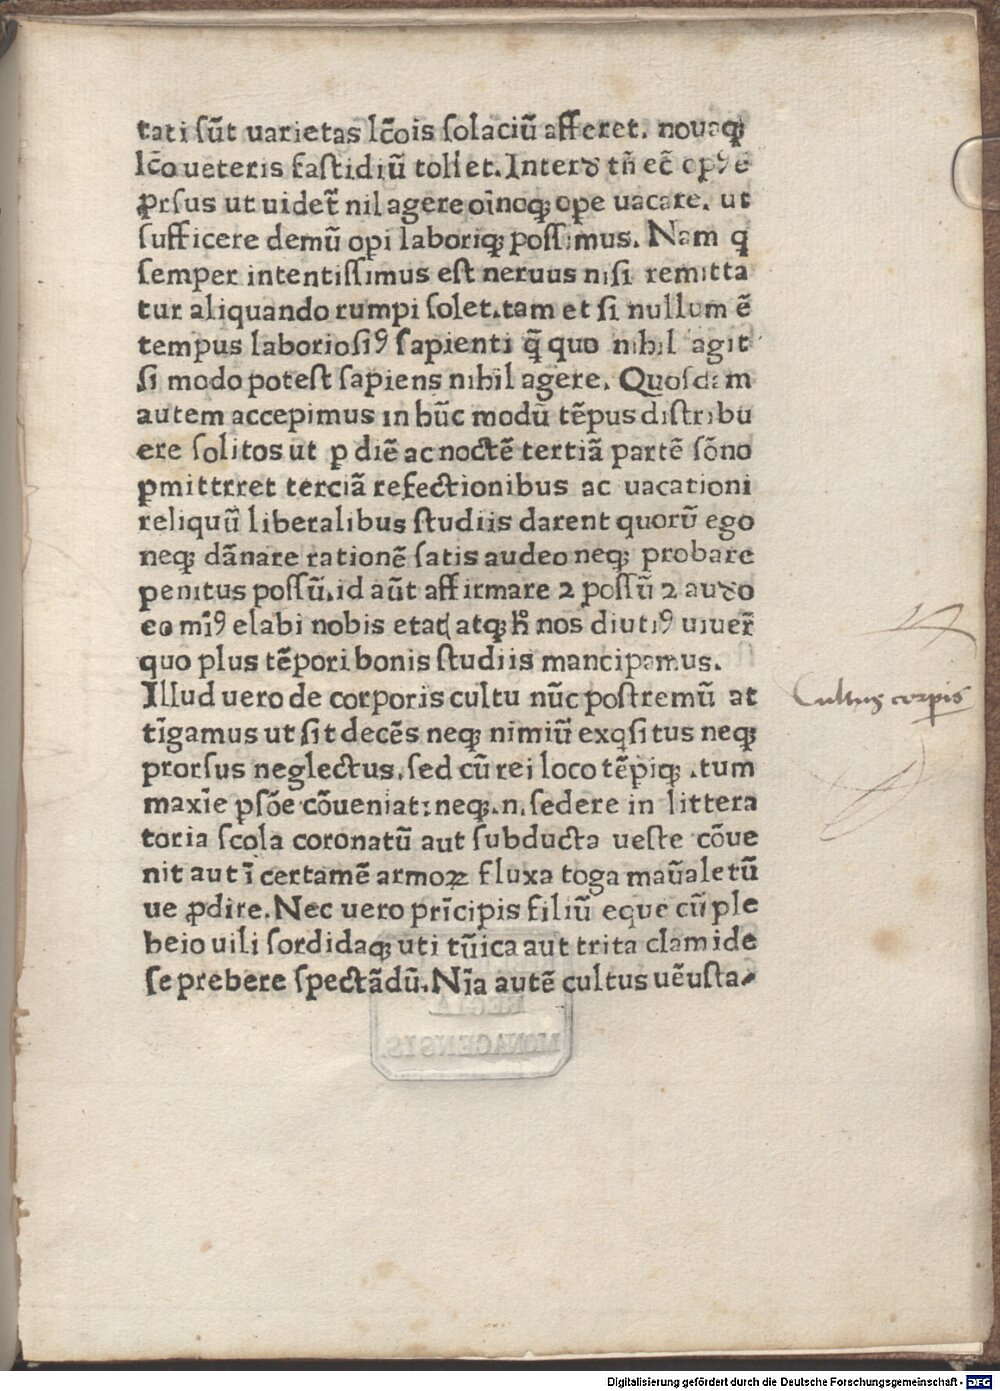 tati sūt uarietas lc̄ois solaciū afferet. nouaqꝫ
lc̄o ueteris fastidiū tollet. Interꝺ tn̄ ec̄ opꝰ ē
ꝓrsus ut uidet̄ nil agere oīnoqꝫ ope uacare. ut
sufficere demū opi laboriqꝫ possimus. Nam q
semper intentissimus est neruus nisi remitta
tur aliquando rumpi solet. tam et si nullum ē
tempus laboriosiꝰ sapienti q̄ quo nihil agit
si modo potest sapiens nihil agere. Quosdam
autem accepimus in hūc modū tēpus distribu
ere solitos ut p diē ac noctē tertiā partē sōno
pmittrret terciā refectionibus ac uacationi
reliquū liberalibus studiis darent quorū ego
neqꝫ dānare rationē satis audeo neqꝫ probare
penitus possū. id aūt affirmare ⁊ possū ⁊ auꝺo
eo mīꝰ elabi nobis etatꝭ atqꝫ h̄ nos diutiꝰ uiuer̄
quo plus tēpori bonis studiis mancipamus.
Illud uero de corporis cultu nūc postremū at
tīgamus ut sit decēs neqꝫ nimiū exqsitus neqꝫ
prorsus neglectus. sed cū rei loco tēpiqꝫ .tum
maxīe psōe cōueniat: neqꝫ .n. sedere in littera
toria scola coronatū aut subducta ueste cōue
nit aut ī certamē armoꝝ fluxa toga maūaletū
ue ꝓdire. Nec uero prīcipis filiū eque cū ple
beio uili sordidaqꝫ uti tūica aut trita clamide
se prebere spectādū. Nīa autē cultus uēusta⸗
Cultus corpis
REGIA
MONACENSIS.
Digitalisierung gefördert durch die Deutsche Forschungsgemeinschaft - DFG